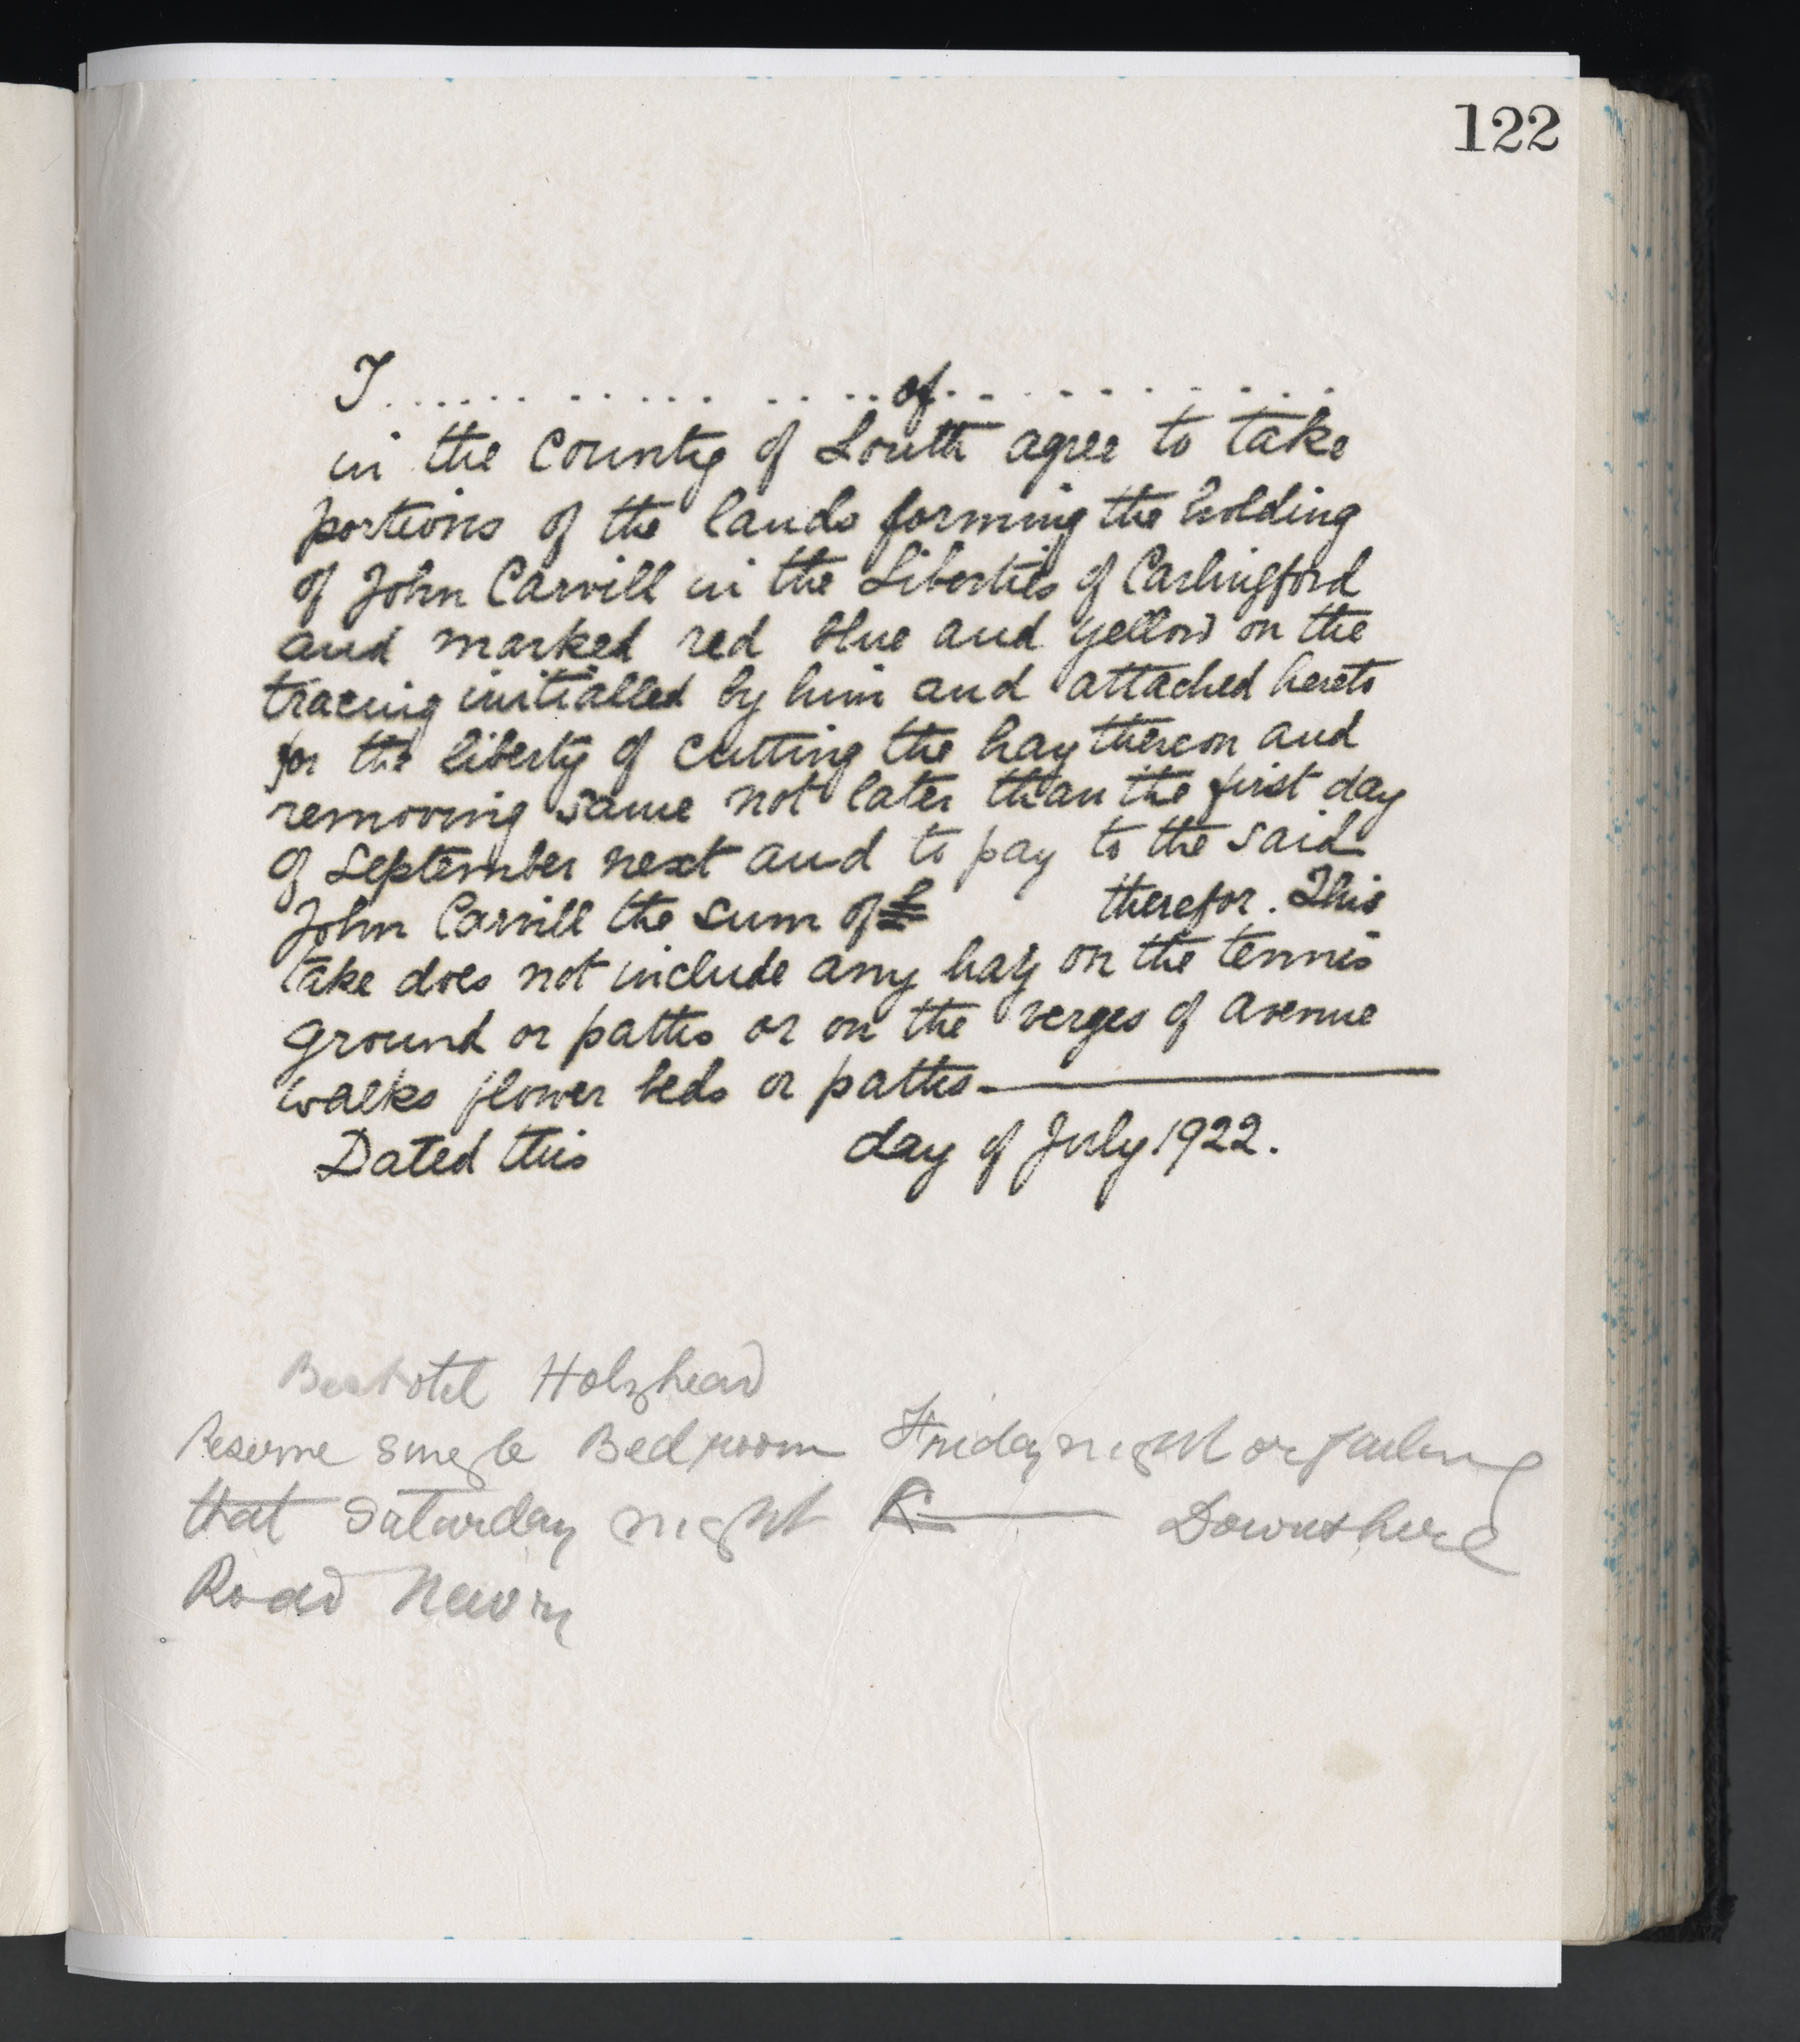 122
I.......................of....................
in the County of Louth agree to take
portions of the lands forming the holding
of John Carvill in the Liberties of Carlingford
and marked red blue and yellow on the
tracing initialled by him and attached hereto
for the liberty of cutting the hay thereon and
removing same not later than the first day
of September next and to pay to the said
John Carvill the sum of £ therefor. This
take does not include any hay on the tennis
ground or paths or on the verges of avenue
walks flower beds or paths
Dated this day of July 1922.
Holyhead
Reserve single Bedroom Friday night or failing
that Saturday night Downshire
Road Newry